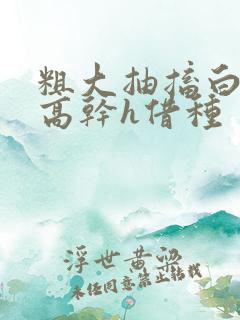 粗大抽搐白
高幹h借種
浮世黄粱
未经同意禁止转载